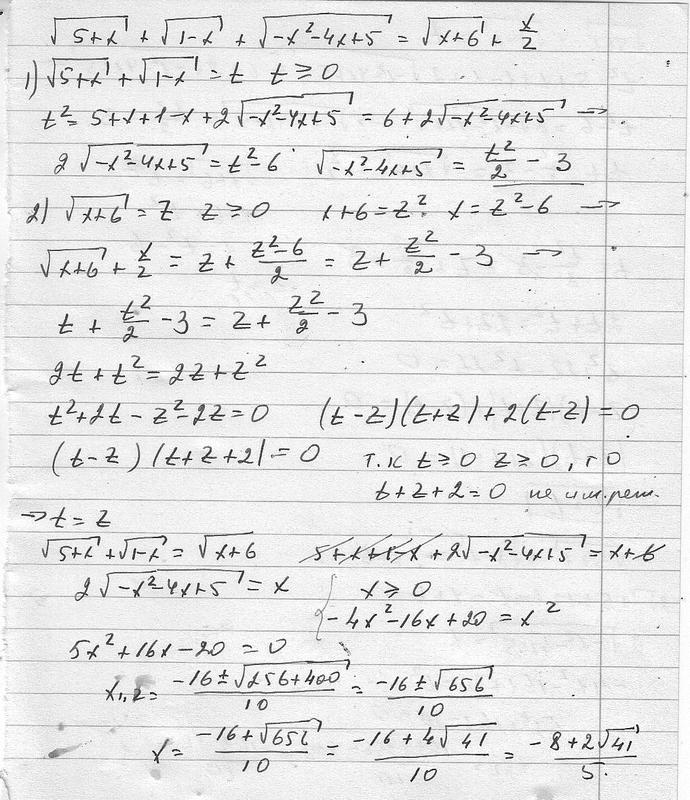 √(5+x) + √(1-x) + √(-x²-4x+5) = √(x+6) + x/2
1) √(5+x) + √(1-x) = t   t ≥ 0
t² = 5+x+1-x+2√(-x²-4x+5) = 6+2√(-x²-4x+5) →
2√(-x²-4x+5) = t²-6   √(-x²-4x+5) = t²/2 - 3
2) √(x+6) = z   z ≥ 0   x+6 = z²   x = z²-6 →
√(x+6) + x/2 = z + (z²-6)/2 = z + z²/2 - 3 →
t + t²/2 - 3 = z + z²/2 - 3
2t + t² = 2z + z²
t²+2t-z²-2z = 0   (t-z)(t+z)+2(t-z) = 0
(t-z)(t+z+2) = 0   т.к t ≥ 0 z ≥ 0, то
t+z+2 = 0 не им.реш.
→ t = z
√(5+x) + √(1-x) = √(x+6)   5+x+1-x+2√(-x²-4x+5) = x+6
2√(-x²-4x+5) = x   { x ≥ 0
-4x²-16x+20 = x²
5x²+16x-20 = 0
x₁,₂ = (-16±√(256+400))/10 = (-16±√656)/10
x = (-16+√656)/10 = (-16+4√41)/10 = (-8+2√41)/5.